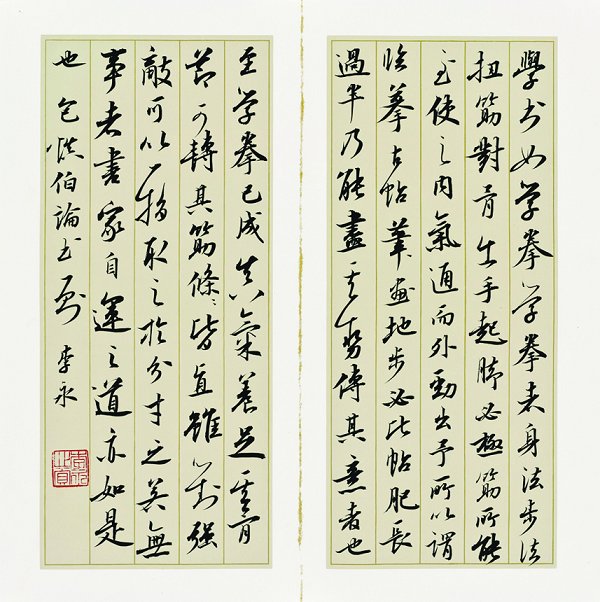 學书如学拳学拳者身法步法
扭筋對骨出手起腳必極筋所能
至使之内氣通而外勁出予所以謂
臨摹古帖筆畫地步必比帖肥長
過半乃能盡其勢傳其意者也
至学拳已成真氣養足其骨
節可轉其筋條〻皆直雖對强
敵可以一指取之於分寸之若無
事者書家自運之道亦如是
也 包慎伯論书則 李永